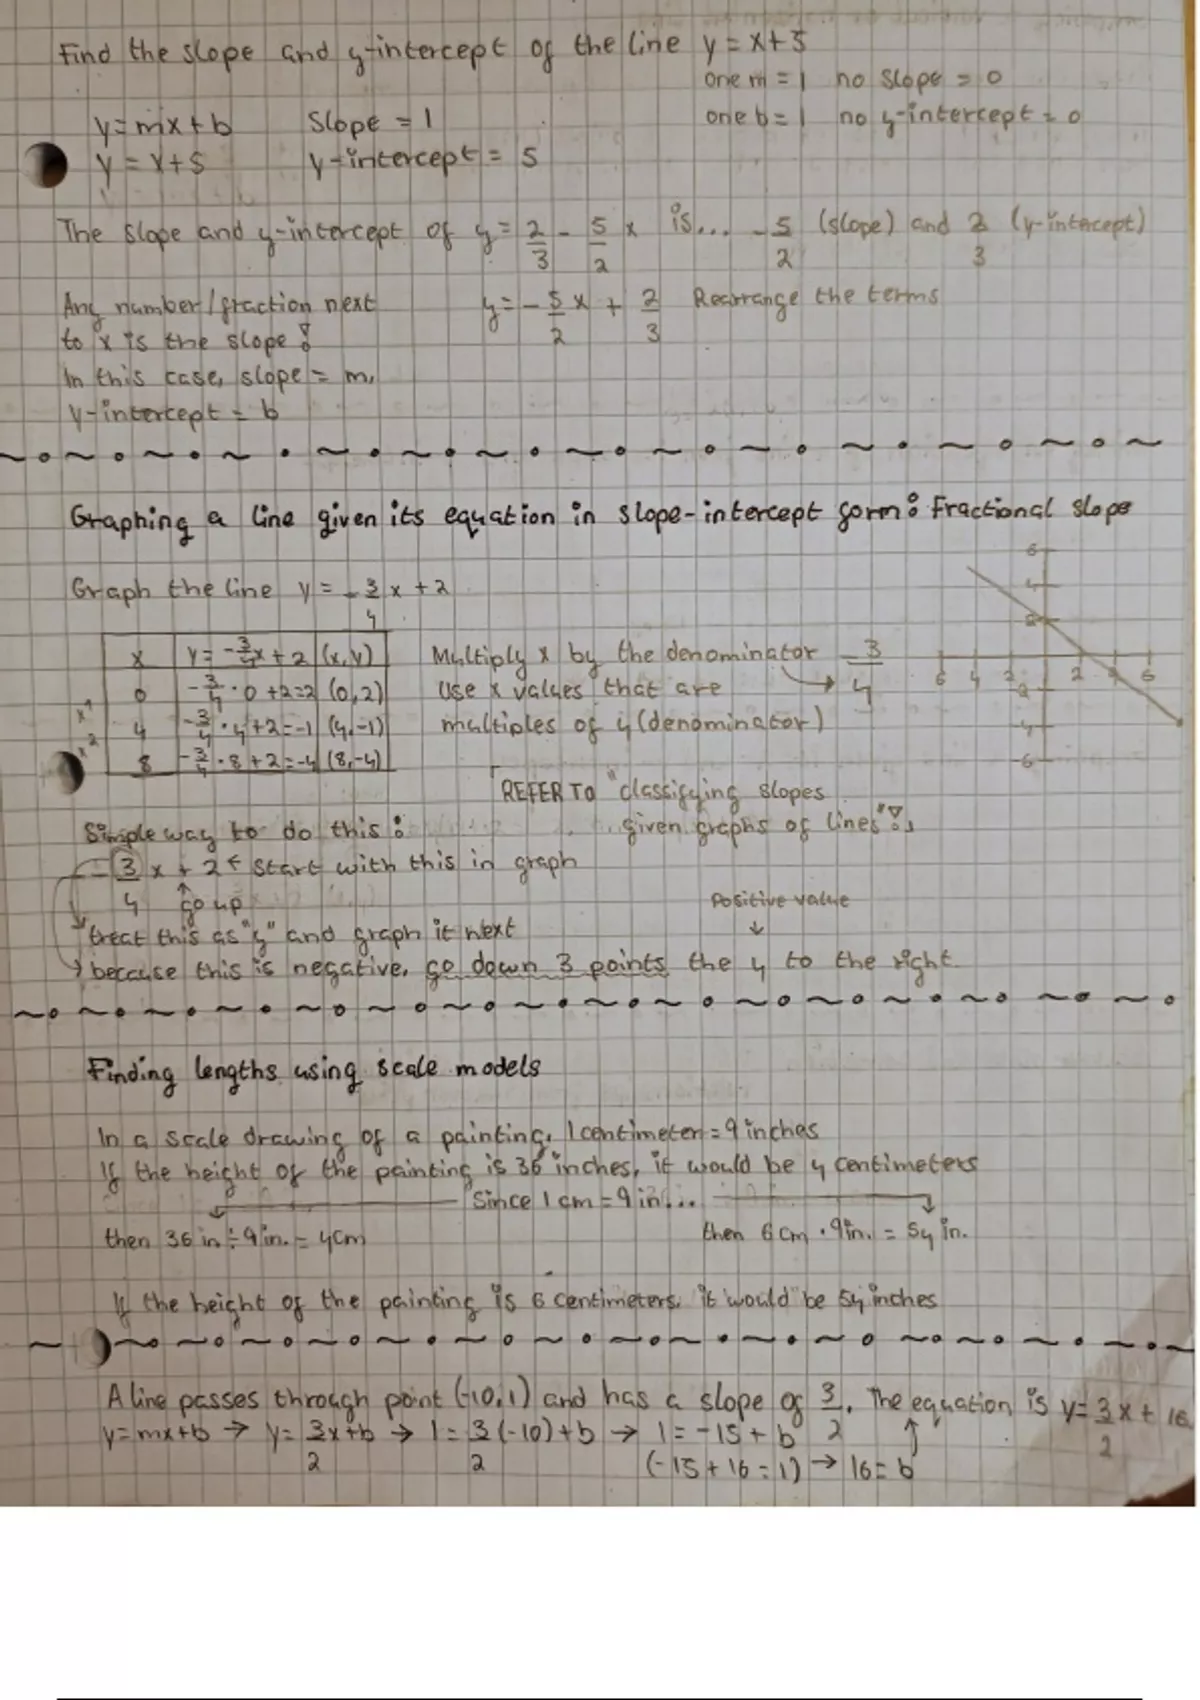 Find the slope and y-intercept of the line y = x+5
one m = 1 no slope = 0
y=mx+b Slope = 1 one b = 1 no y-intercept = 0
y = x+5 y-intercept = 5
The slope and y-intercept of y = 2/3 - 5/2 x is... -5/2 (slope) and 2/3 (y-intercept)
Any number/fraction next y = -5/2 x + 2/3 Rearrange the terms
to x is the slope!
In this case, slope = m,
y-intercept = b
Graphing a line given its equation in slope-intercept form: Fractional slope
Graph the line y = -3/4 x + 2
x y = -3/4x + 2 (x,y) Multiply x by the denominator 3/4
0 -3/4 · 0 +2=2 (0,2) Use x values that are
4 -3/4 · 4+2=-1 (4,-1) multiples of 4 (denominator)
8 -3/4 · 8+2=-4 (8,-4)
6 4 2 2 4 6
6
4
2
-2
-4
-6
REFER TO "classifying slopes
Simple way to do this: given graphs of lines"!
-3/4 x + 2 ← start with this in graph
go up
Positive value
treat this as "y" and graph it next
because this is negative, go down 3 points the 4 to the right
Finding lengths using scale models
In a scale drawing of a painting, 1 centimeter = 9 inches
If the height of the painting is 36 inches, it would be 4 centimeters
Since 1 cm = 9 in...
then 36 in ÷ 9 in. = 4cm then 6 cm · 9in. = 54 in.
If the height of the painting is 6 centimeters, it would be 54 inches
A line passes through point (-10,1) and has a slope of 3/2. The equation is y = 3/2 x + 16
y=mx+b → y = 3/2 x+b → 1 = 3/2 (-10)+b → 1 = -15 + b
(-15 + 16 = 1) → 16 = b